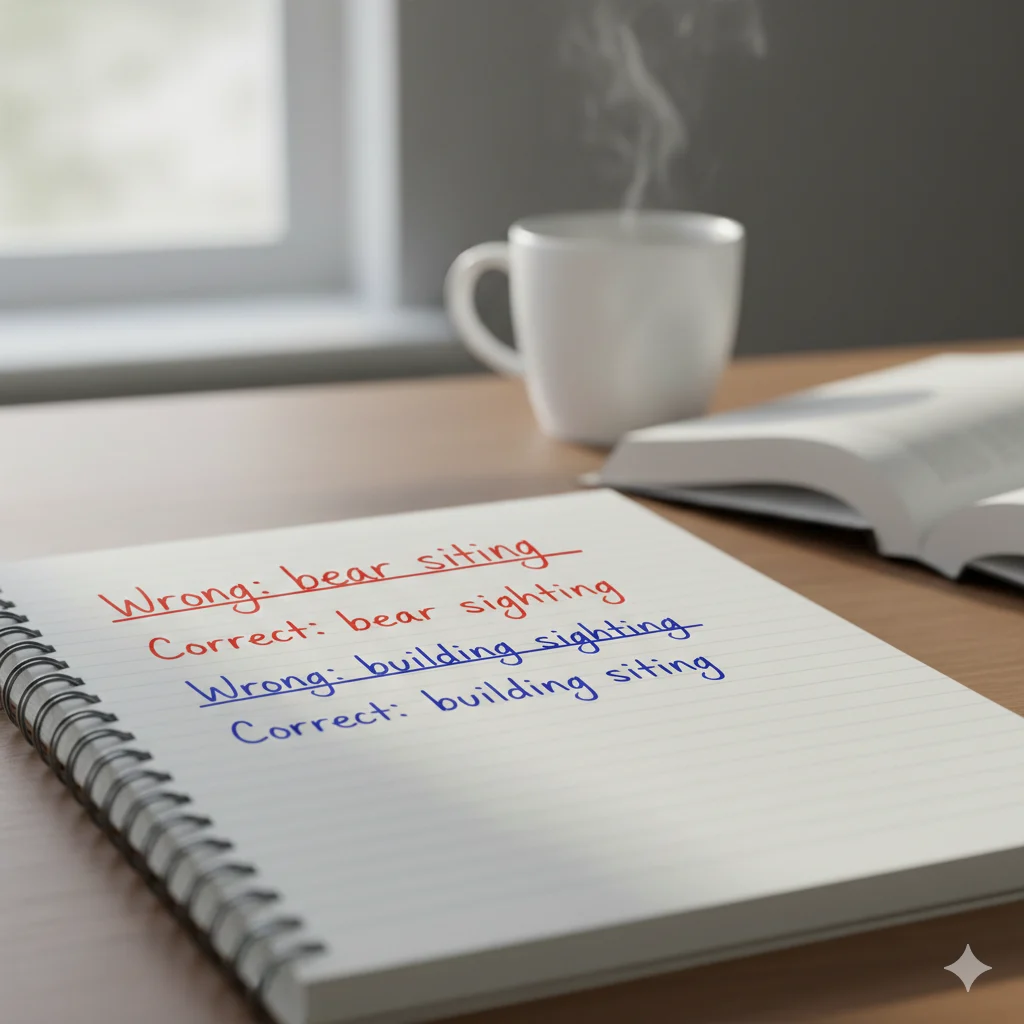 Wrong: bear siting
Correct: bear sighting
Wrong: building sighting
Correct: building siting